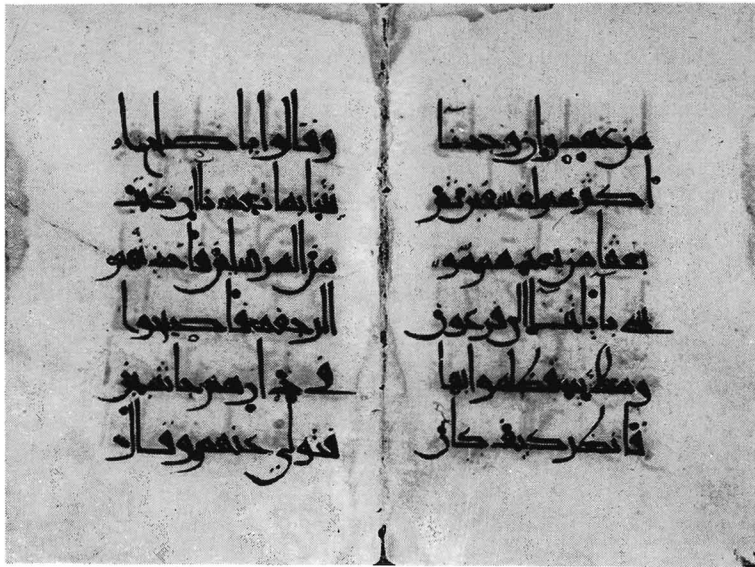 من عهد وان وجدنا
اكثرهم لفسقين ثم
بعثنا من بعدهم مو
سى باياتنا الى فرعون
وملايه فظلموا بها
فانظر كيف كان
وقالوا يا صلح ا
ئتنا بما تعدنا ان كنت
من المرسلين فاخذتهم
الرجفة فاصبحوا
في دارهم جاثمين
فتولى عنهم وقال